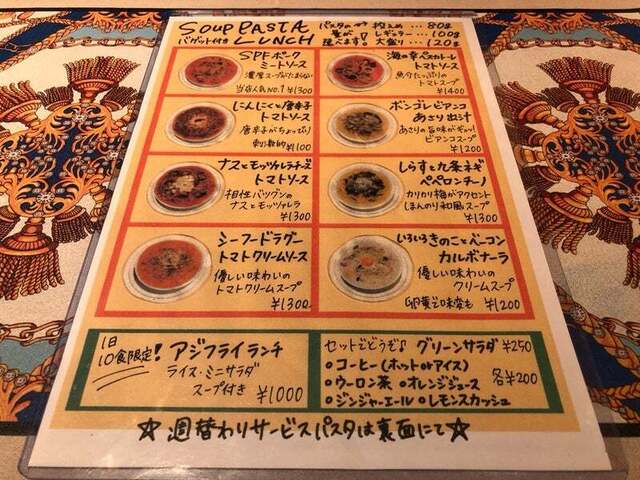 SOUP PASTA
LUNCH
バゲット付き
パスタの量が選べます!
控えめ…80g
レギュラー…100g
大盛り…120g
SPFポーク
ミートソース
濃厚スープがたまらない
当店人気No.1 ¥1300
海の幸ペスカトーレ
トマトソース
魚介たっぷりの
トマトスープ
¥1400
にんにくと唐辛子
トマトソース
唐辛子がちょっぴり
刺激的 ¥1100
ボンゴレビアンコ
あさり出汁
あさりの旨味がギュッ!
ビアンコスープ
¥1200
ナスとモッツァレラチーズ
トマトソース
相性バツグンの
ナスとモッツァレラ
¥1300
しらすと九条ネギ
ペペロンチーノ
カリカリ梅がアクセント
ほんのり和風スープ
¥1300
シーフードラグー
トマトクリームソース
優しい味わいの
トマトクリームスープ
¥1300
いろいろきのことベーコン
カルボナーラ
優しい味わいの
クリームスープ
卵黄で味変も ¥1200
1日
10食限定!
アジフライランチ
ライス・ミニサラダ
スープ付き ¥1000
セットどうぞ♪ グリーンサラダ ¥250
○コーヒー(ホットorアイス)
○ウーロン茶 ○オレンジジュース
○ジンジャーエール ○レモンスカッシュ
各¥200
☆週替わりサービスパスタは裏面にて☆